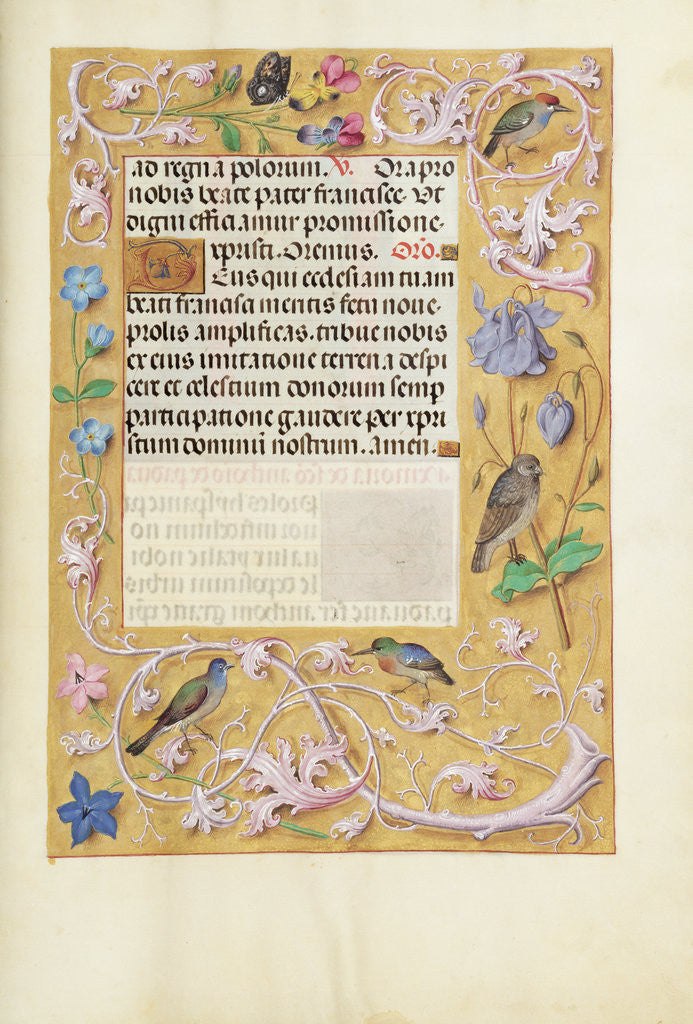 ad regna polorum. V. Ora pro
nobis beate pater francisce. Ut
digni efficiamur promissione.
xpristi. Oremus. Oro.
Deus qui ecclesiam tuam
beati francisci meritis fetu noue.
prolis amplificas. tribue nobis
ex eius imitatione terrena despi
cere et celestium donorum semp
participatione gaudere per xpri
stum dominum nostrum. amen.